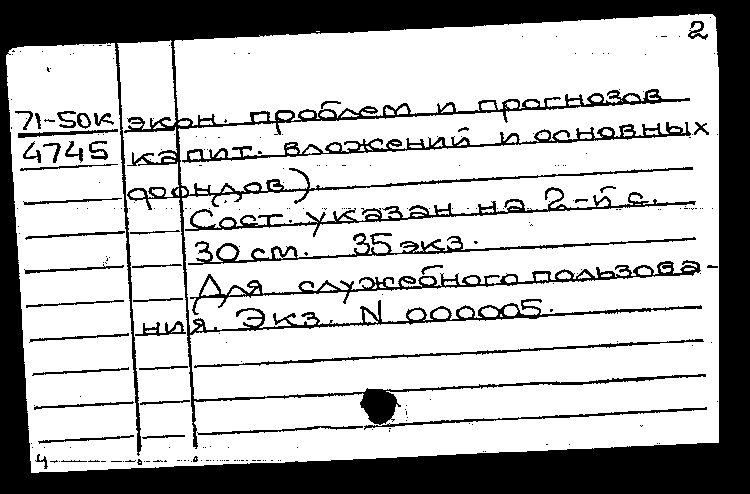 2
71-50к экон. проблем и прогнозов
4745 капит. вложений и основных
фондов).
Сост. указан на 2-й с.
30 см. 35 экз.
Для служебного пользова-
ния. Экз. N 000005.
4